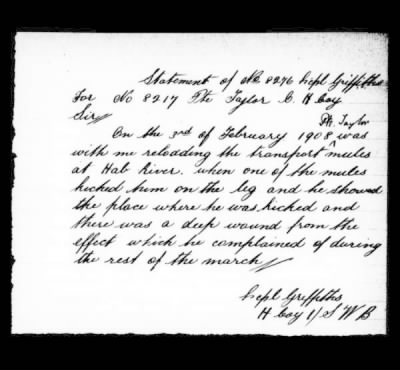 Statement of No 8276 Lcpl Griffiths
For No 8217 Pte Taylor C. H Coy
Sir
Pte. Taylor
On the 3rd of February 1908 ^ was
with me reloading the transport mules
at Hab River. when one of the mules
kicked him on the leg and he showed
the place where he was kicked and
there was a deep wound from the
effect which he complained of during
the rest of the march
Lcpl Griffiths
H Coy 1/S W B